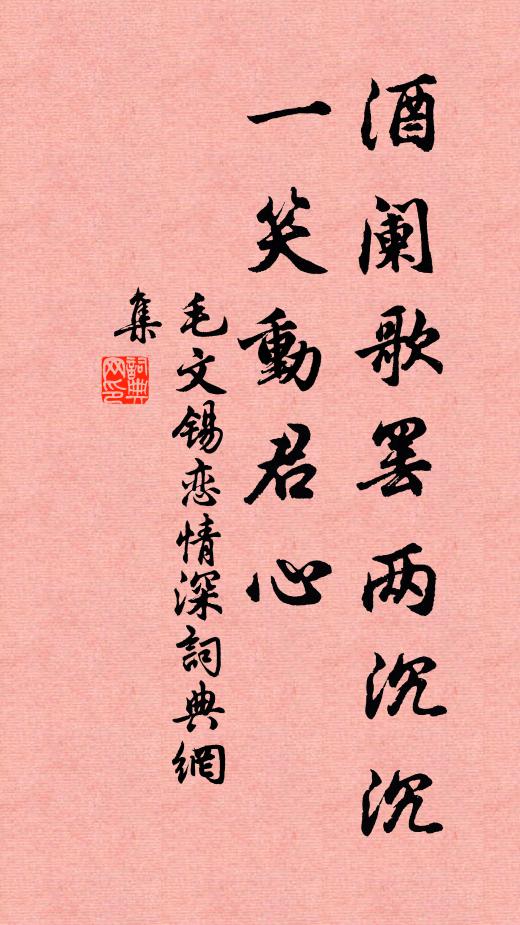 酒阑歌罢两沉沉
一笑動君心
毛文锡恋情深詞典網
集
詞典网印